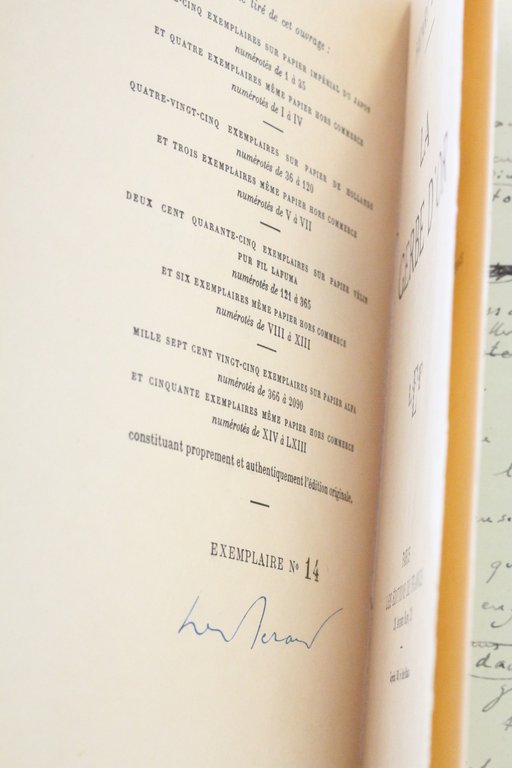 tiré de cet ouvrage :
-CINQ EXEMPLAIRES SUR PAPIER IMPÉRIAL DU JAPON
numérotés de 1 à 35
ET QUATRE EXEMPLAIRES MÊME PAPIER HORS COMMERCE
numérotés de I à IV
QUATRE-VINGT-CINQ EXEMPLAIRES SUR PAPIER DE HOLLANDE
numérotés de 36 à 120
ET TROIS EXEMPLAIRES MÊME PAPIER HORS COMMERCE
numérotés de V à VII
DEUX CENT QUARANTE-CINQ EXEMPLAIRES SUR PAPIER VÉLIN
PUR FIL LAFUMA
numérotés de 121 à 365
ET SIX EXEMPLAIRES MÊME PAPIER HORS COMMERCE
numérotés de VIII à XIII
MILLE SEPT CENT VINGT-CINQ EXEMPLAIRES SUR PAPIER ALFA
numérotés de 366 à 2090
ET CINQUANTE EXEMPLAIRES MÊME PAPIER HORS COMMERCE
numérotés de XIV à LXIII
constituant proprement et authentiquement l'édition originale.
EXEMPLAIRE Nº 14
LA
GERBE D'OR
PARIS
LES ÉDITIONS DE FRANCE